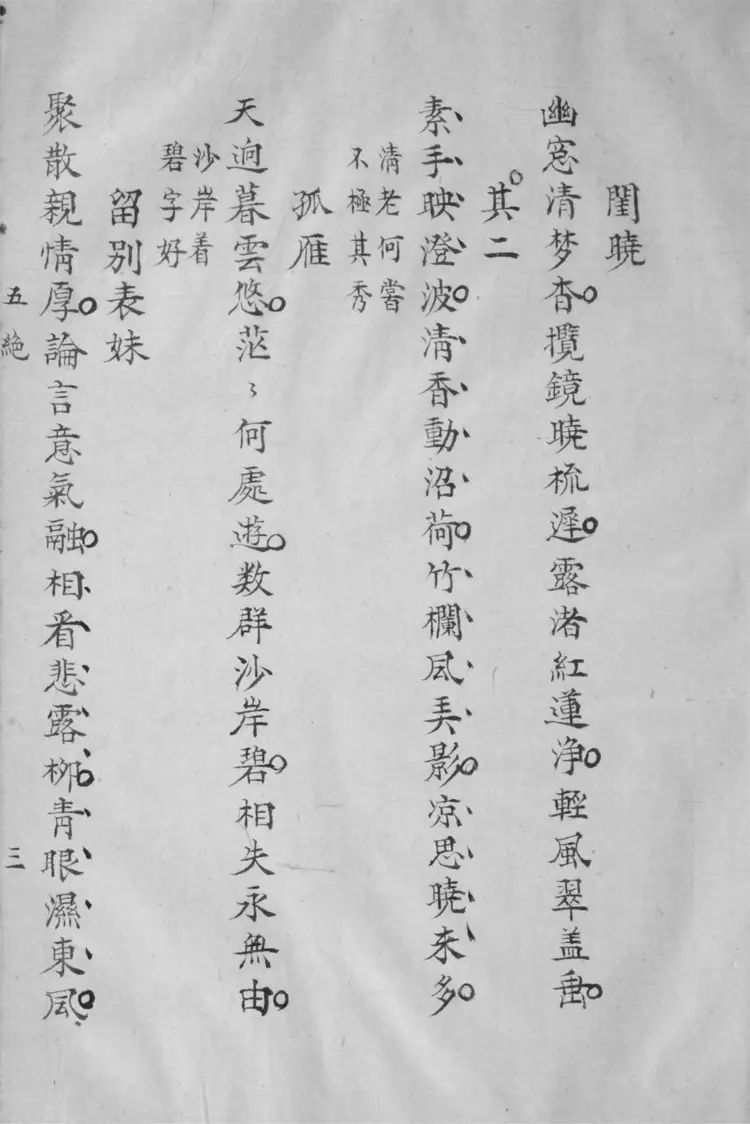 閨曉
幽窓清梦杳攬鏡曉梳遲露渚紅蓮净輕風翠盖垂
其二
素手映澄波清香動沼荷竹欄風弄影凉思曉来多
清老何嘗
不極其秀
孤雁
天逈暮雲悠茫〻何處遊数群沙岸碧相失永無由
沙岸着
碧字好
留別表妹
聚散親情厚論言意氣融相看悲露栁青眼濕東風
五絶
三